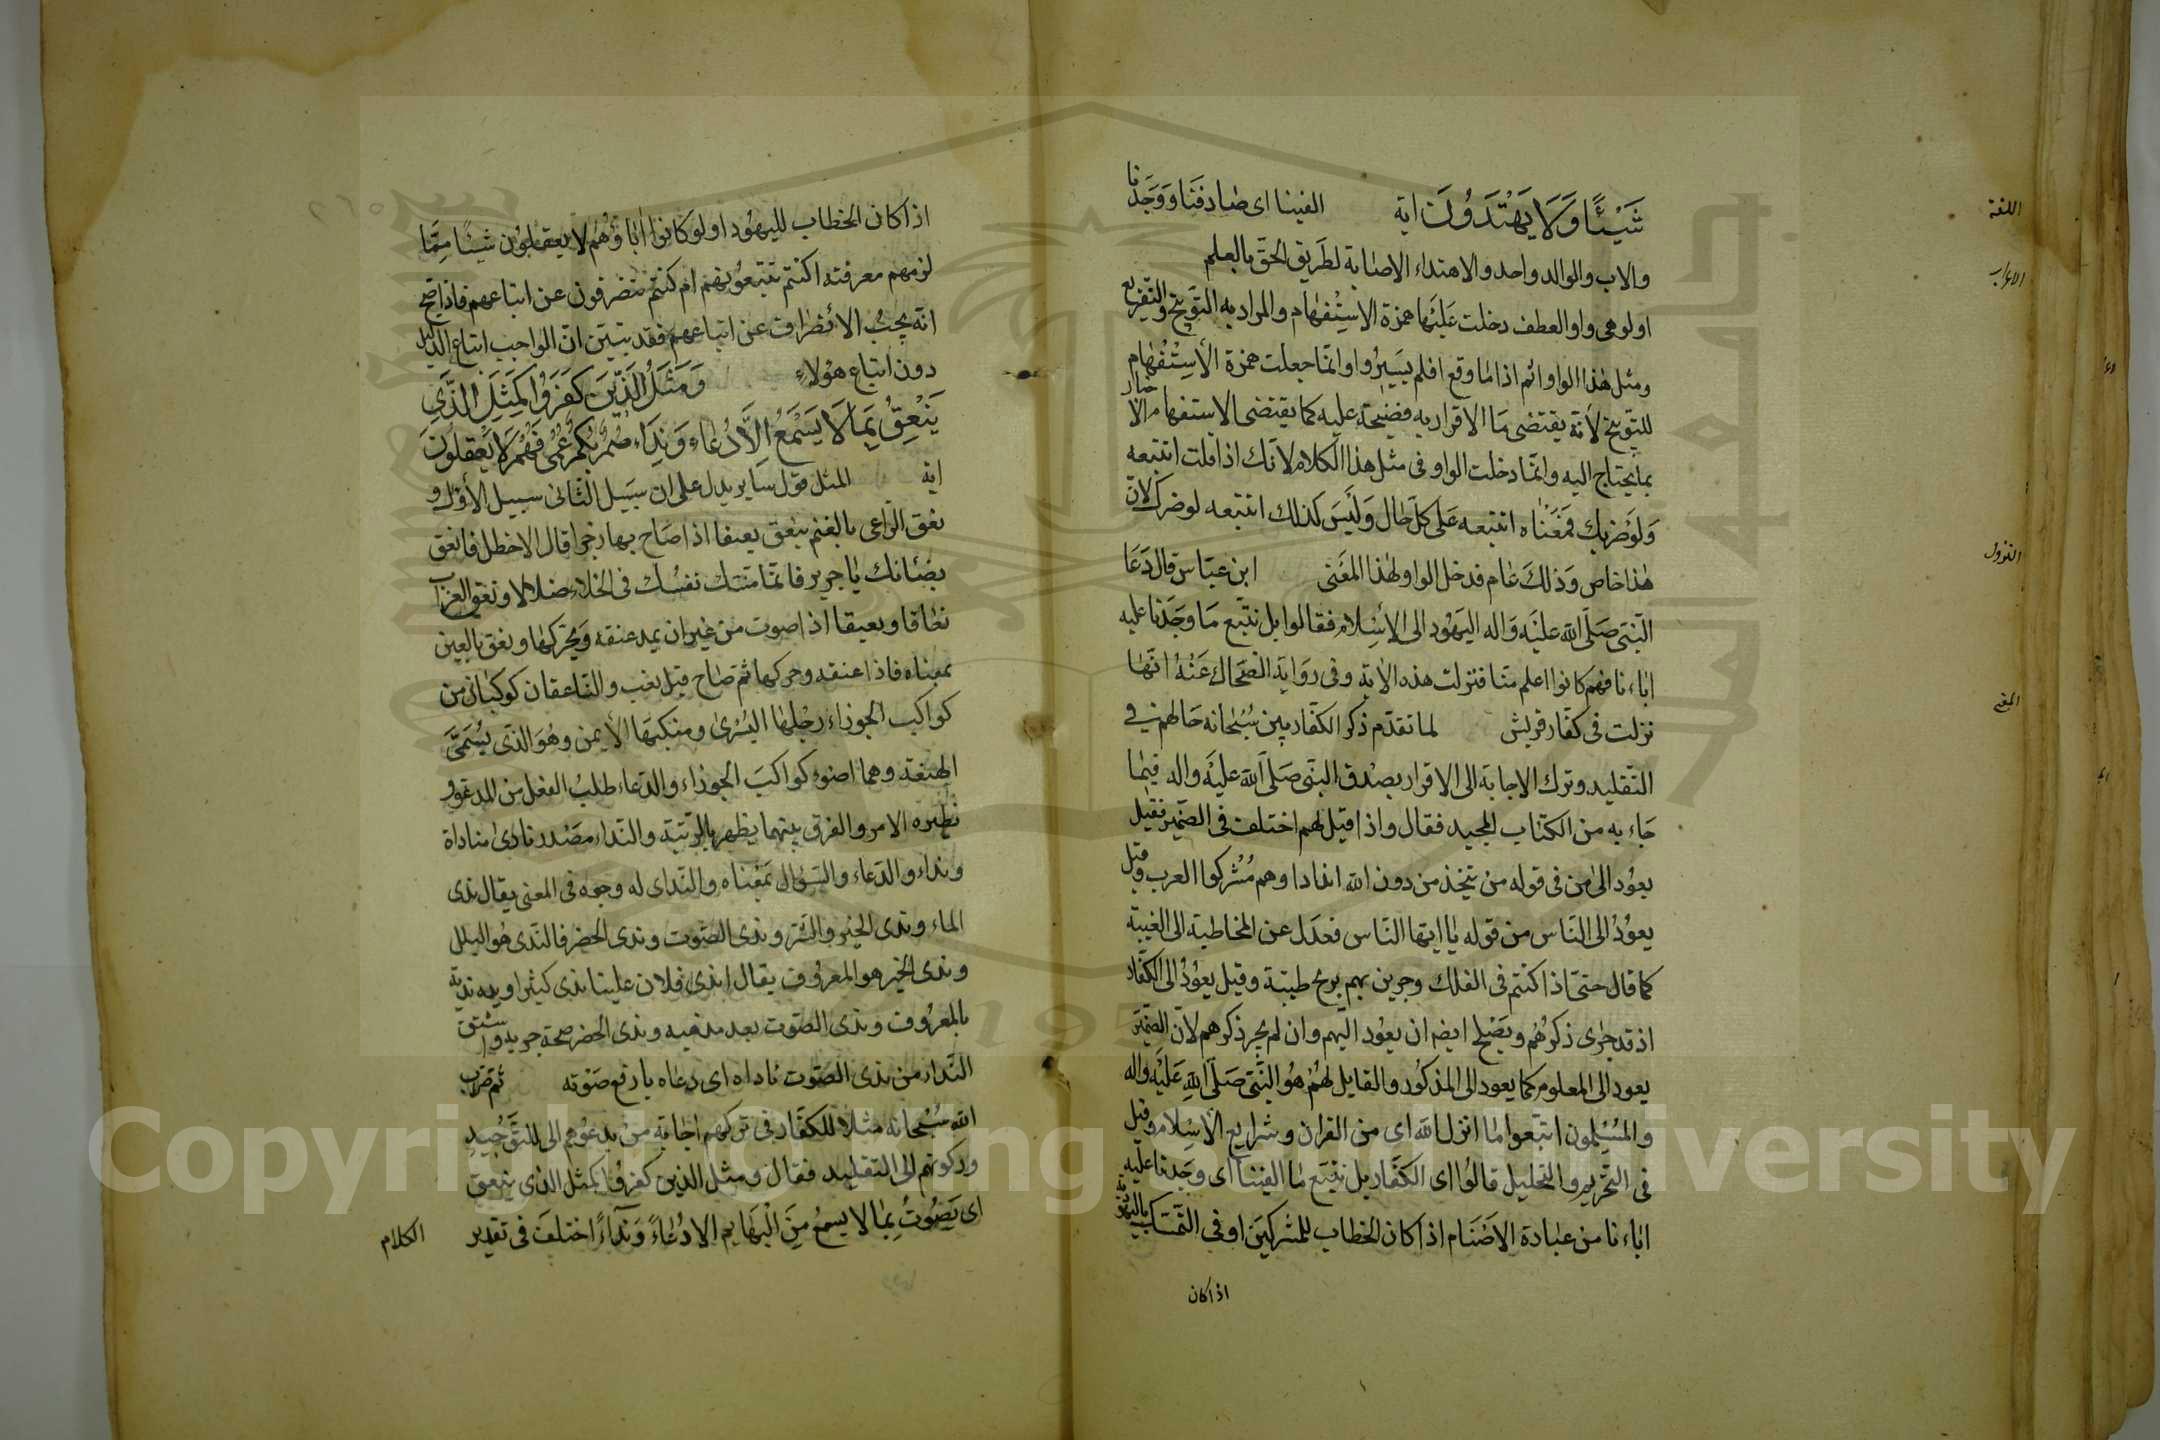 شَيْئًا وَلَا يَهْتَدُونَ اية الفينا اى صادفنا ووجدنا
اللغة
والاب والوالد واحد والاهتداء الاصابة لطريق الحق بالعلم
الاعراب
اولو هى واو العطف دخلت عليها همزة الاستفهام والمراد به التوبيخ والتقريع
ومثل هذا الواو اثم اذا ما وقع افلم يسيروا وانما جعلت همزة الاستفهام
للتوبيخ لانه يقتضى ما الاقرار به فضيحة عليه كما يقتضى الاستفهام الاخبار
بما يحتاج اليه وانما دخلت الواو فى مثل هذا الكلام لانك اذا قلت اتتبعه
ولو ضربك فمعناه اتتبعه على كل حال وليس كذلك اتتبعه لو ضرك لان
هذا خاص وذلك عام فدخل الواو لهذا المعنى ابن عباس قال دعا
النزول
النبى صلى الله عليه واله اليهود الى الاسلام فقالوا بل نتبع ما وجدنا عليه
اباءنا فهم كانوا اعلم منا فنزلت هذه الاية وفى رواية الضحاك عنه انها
نزلت فى كفار قريش لما تقدم ذكر الكفار بين سبحانه حالهم فى
المعنى
التقليد وترك الاجابة الى الاقرار بصدق النبى صلى الله عليه واله فيما
جاء به من الكتاب المجيد فقال واذا قيل لهم اختلف فى الضمير فقيل
يعود الى من فى قوله من يتخذ من دون الله اندادا وهم مشركوا العرب وقيل
يعود الى الناس من قوله يا ايها الناس فعدل عن المخاطبة الى الغيبة
كما قال حتى اذا كنتم فى الفلك وجرين بهم بريح طيبة وقيل يعود الى الكفار
اذ قد جرى ذكرهم ويصلح ايضا ان يعود اليهم وان لم يجر ذكرهم لان الضمير
يعود الى المعلوم كما يعود الى المذكور والقايل لهم هو النبى صلى الله عليه واله
والمسلمون اتبعوا ما انزل الله اى من القران وشرايع الاسلام وقيل
فى التحريم والتحليل قالوا اى الكفار بل نتبع ما الفينا اى وجدنا عليه
اباءنا من عبادة الاصنام اذا كان الخطاب للمشركين او فى التمسك باليهودية
اذا كان
اذا كان الخطاب لليهود اولو كانوا اباؤهم لا يعقلون شيئا مما
لزمهم معرفته اكنتم تتبعونهم ام كنتم تنصرفون عن اتباعهم فاذا صح
انه يجب الانصراف عن اتباعهم فقد تبين ان الواجب اتباع الدليل
دون اتباع هؤلاء وَمَثَلُ الَّذِينَ كَفَرُوا كَمَثَلِ الَّذِي
يَنْعِقُ بِمَا لَا يَسْمَعُ اِلَّا دُعَاءً وَنِدَاءً صُمٌّ بُكْمٌ عُمْىٌ فَهُمْ لَا يَعْقِلُونَ
اية المثل قول ساير يدل على ان سبيل الثانى سبيل الاول و
نعق الراعى بالغنم ينعق نعيقا اذا صاح بها زجرا قال الاخطل فانعق
بضانك يا جرير فانما منتك نفسك فى الخلاء ضلالا ونعق الغراب
نغاقا ونغيقا اذا صوت من غير ان يمد عنقه ويحركها ونغق بالغين
بمعناه فاذا مد عنقه وحركها ثم صاح قيل نغب والناعقان كوكبان من
كواكب الجوزاء رجلها اليسرى ومنكبها الايمن وهو الذى يسمى
الهنعة وهما اضوء كواكب الجوزاء والدعاء طلب الفعل من المدعو و
نظيره الامر والفرق بينهما يظهر بالرتبة والنداء مصدر نادى مناداة
ونداء والدعاء والسؤال بمعناه والندى له وجوه فى المعنى يقال ندى
الماء وندى الخير والشر وندى الصوت وندى الحضر فالندى هو البلل
وندى الخير هو المعروف يقال اندى فلان علينا ندى كثيرا ويده ندية
بالمعروف وندى الصوت بعد مذهبه وندى الحضر صحة جريه واشتق
النداء من ندى الصوت ناداه اى دعاه بارفع صوته ثم ضرب
الله سبحانه مثلا للكفار فى تركهم اجابة من يدعوهم الى التوحيد
وركونهم الى التقليد فقال ومثل الذين كفروا كمثل الذى ينعق
اى يصوت بما لا يسمع من البهايم الا دعاء ونداء اختلف فى تقدير
الكلام
Copyright © King Saud University
1957